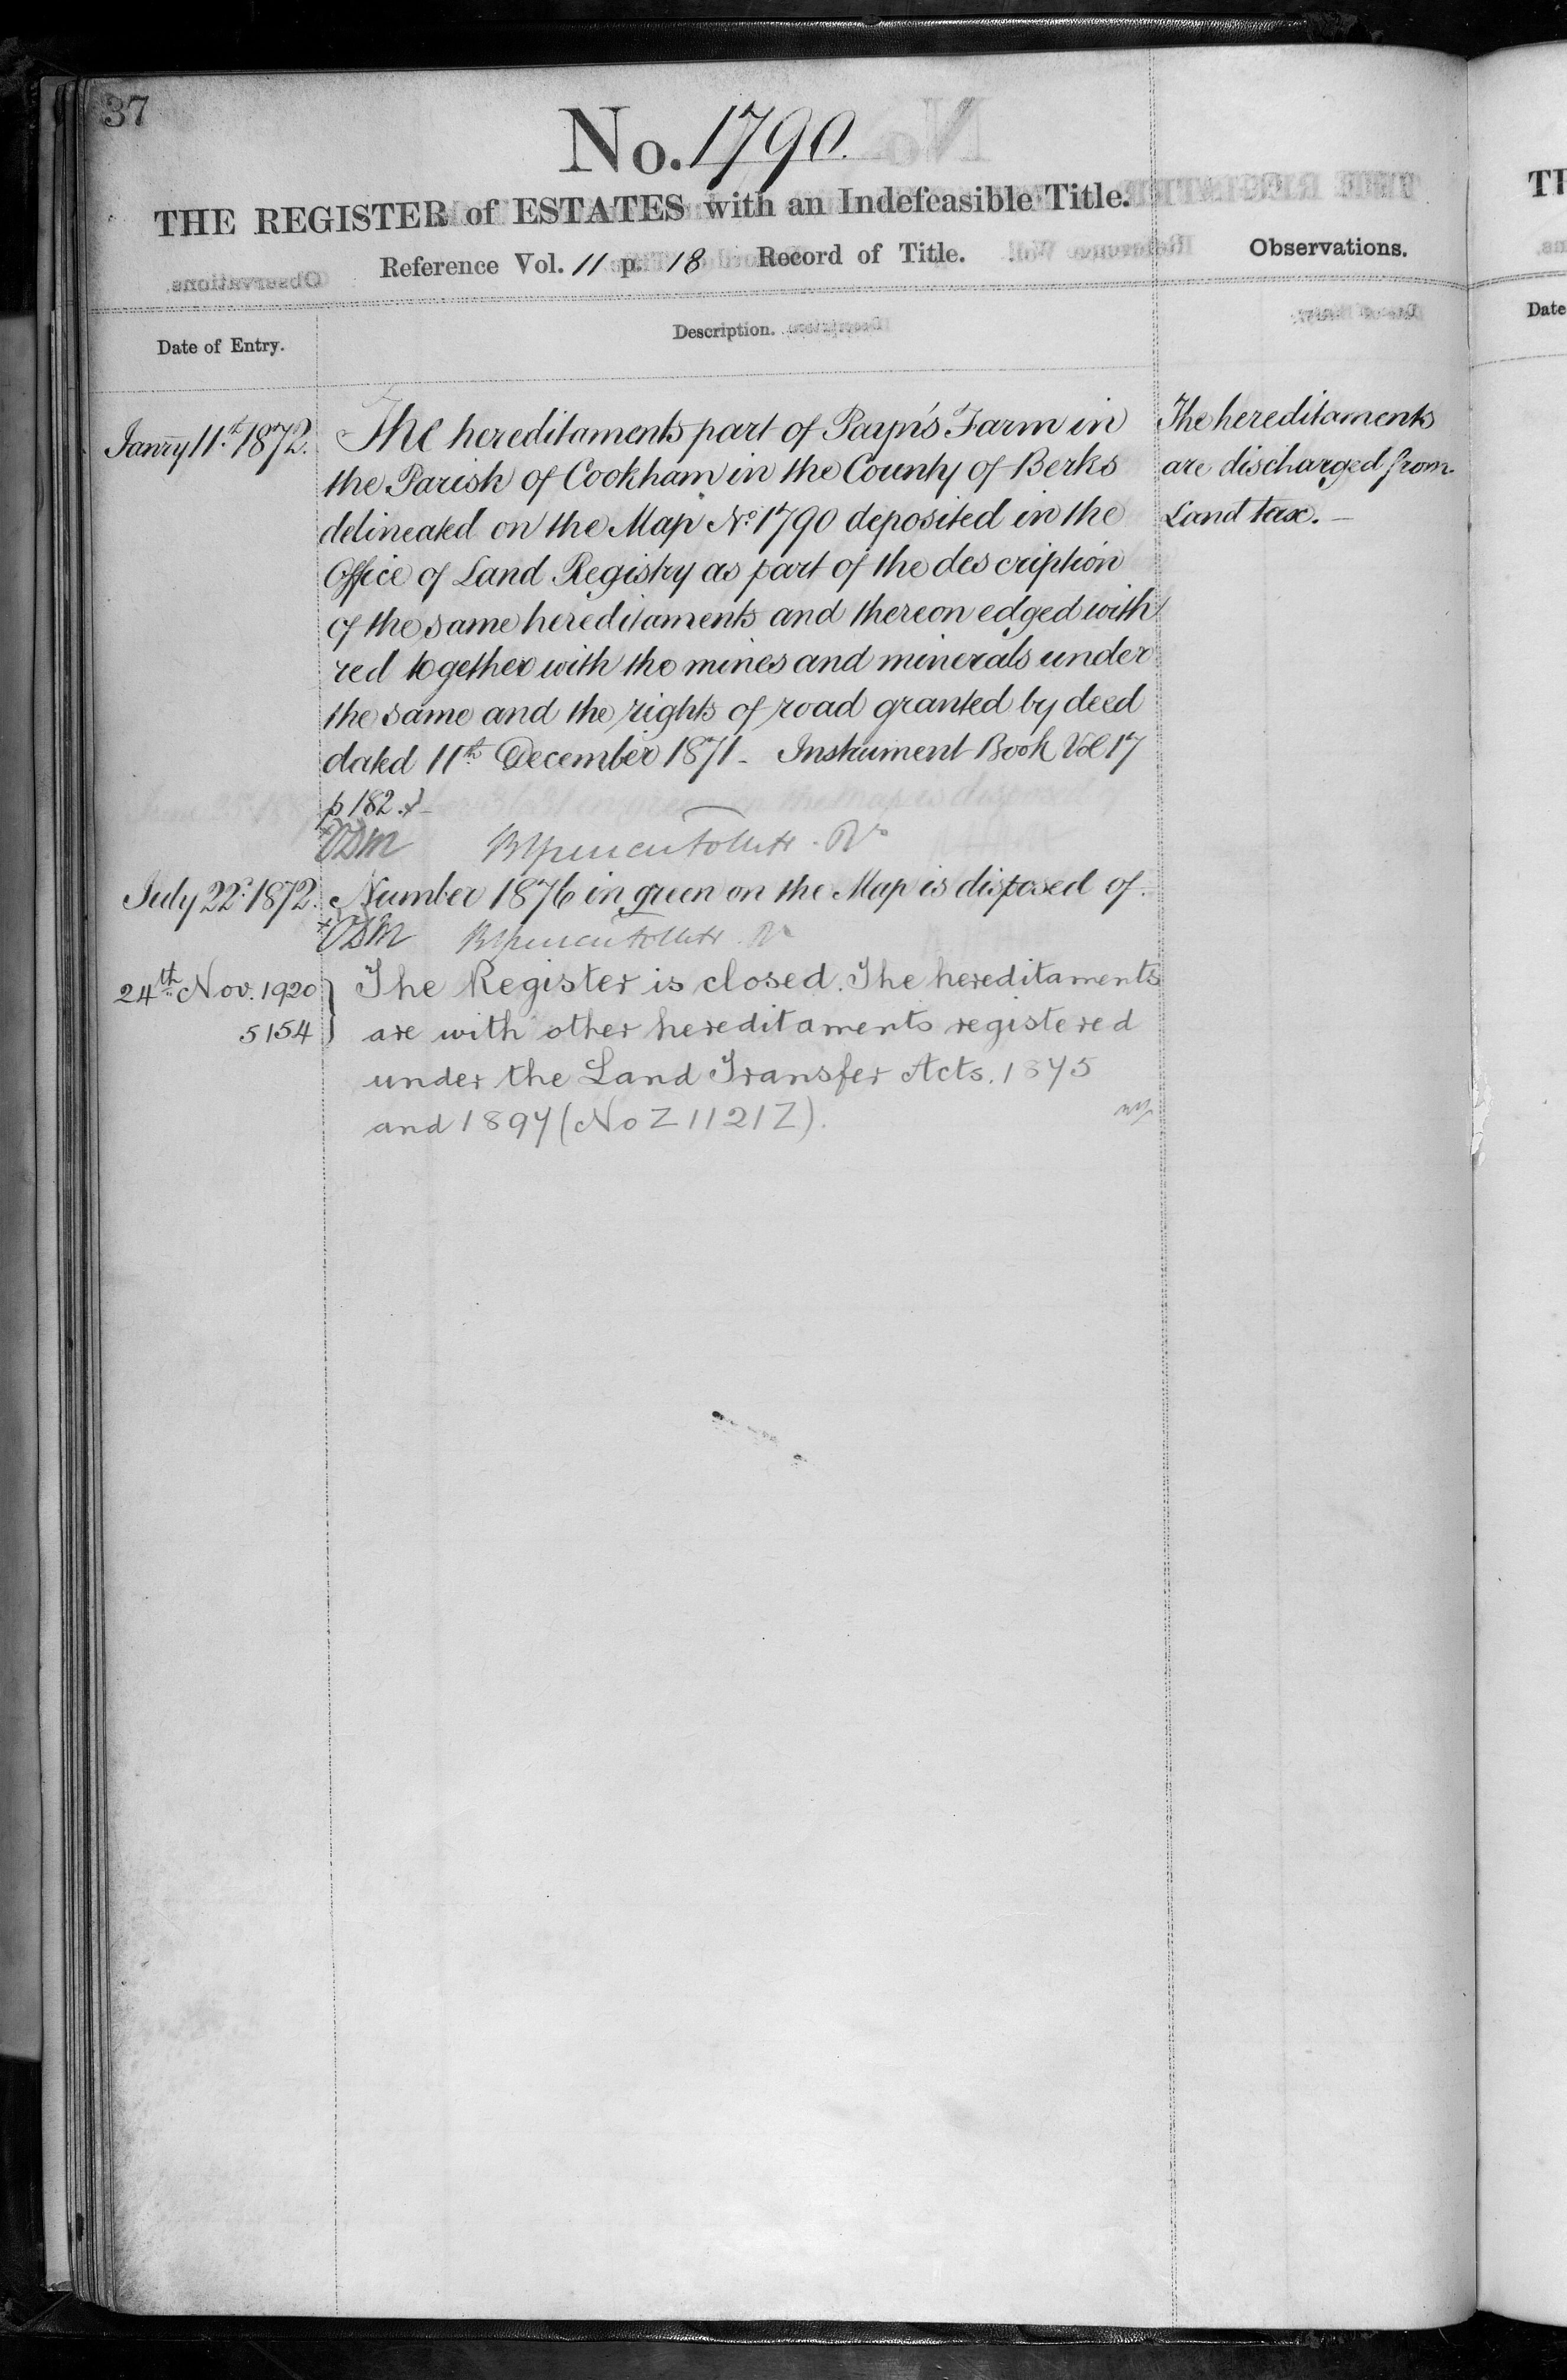 37
No. 1790.
THE REGISTER of ESTATES with an Indefeasible Title.
Reference Vol. 11 p. 18 Record of Title.
Observations.
Date of Entry.
Description.
Janry 11th 1872.
The hereditaments part of Payn's Farm in
the Parish of Cookham in the County of Berks
delineated on the Map No 1790 deposited in the
Office of Land Registry as part of the description
of the same hereditaments and thereon edged with
red together with the mines and minerals under
the same and the rights of road granted by deed
dated 11th December 1871 - Instrument Book Vol 17
p 182.
The hereditaments
are discharged from
Land tax. -
July 22d 1872.
Number 1876 in green on the Map is disposed of.
24th Nov. 1920
5154
The Register is closed. The hereditaments
are with other hereditaments registered
under the Land Transfer Acts. 1875
and 1897 (No Z 1121Z).
TI
Date